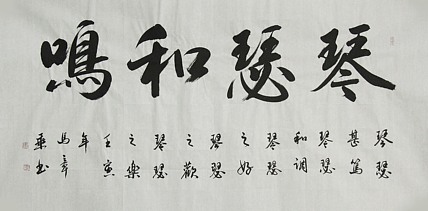 琴瑟和鳴
琴瑟
甚篤
琴瑟
和調
琴瑟
之好
琴瑟
之歡
琴瑟
之樂
壬寅
年
馬章
乘书